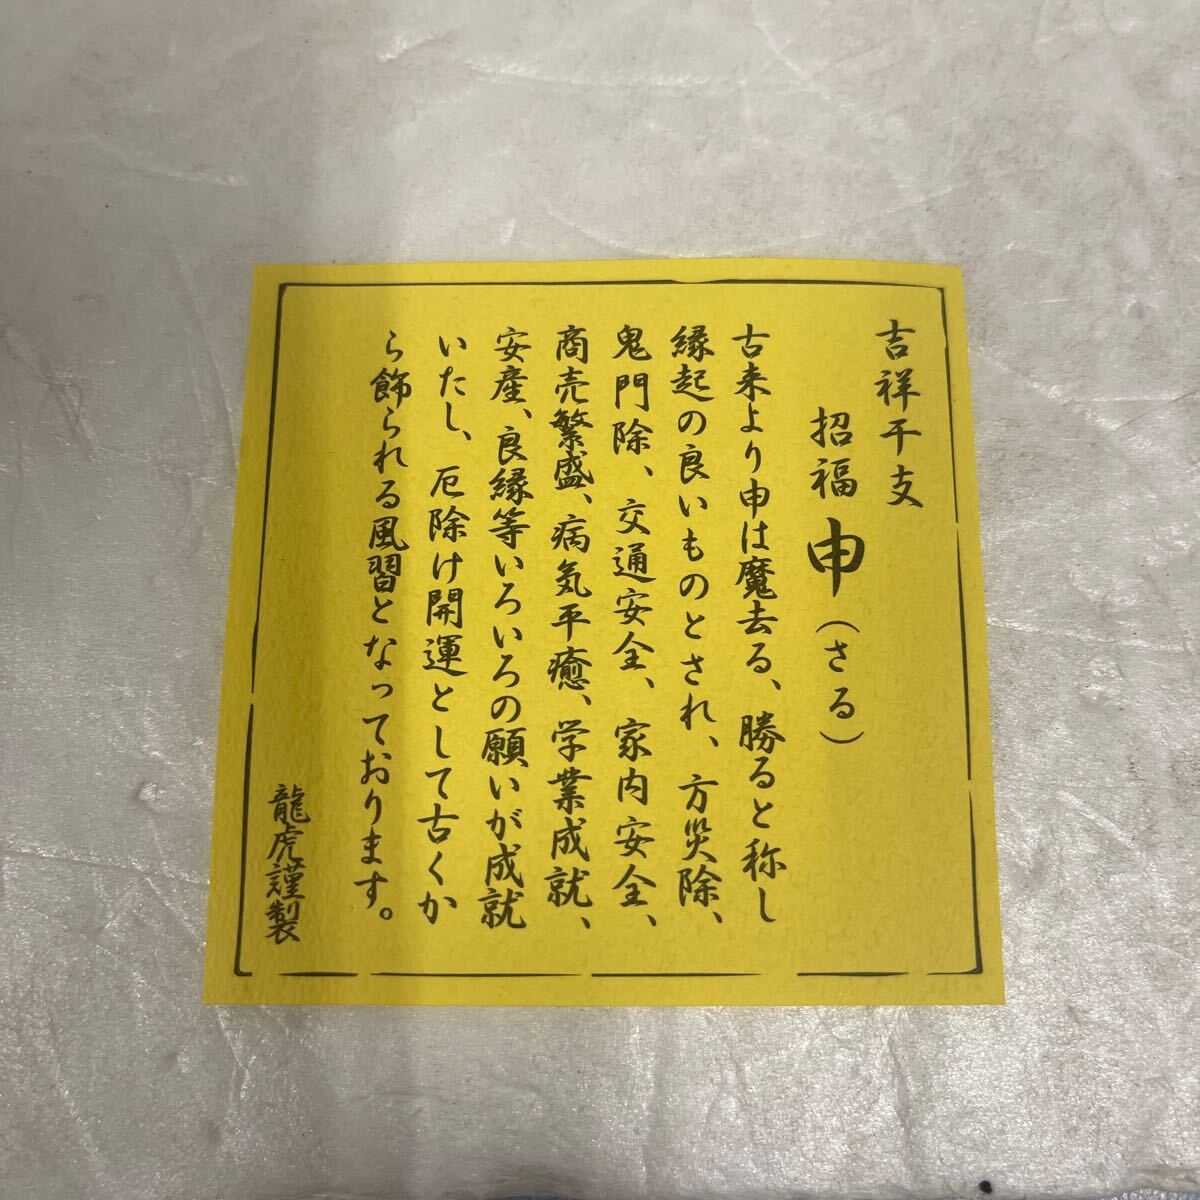 吉祥干支
招福 申（さる）
古来より申は魔去る、勝ると称し
縁起の良いものとされ、方災除、
鬼門除、交通安全、家内安全、
商売繁盛、病気平癒、学業成就、
安産、良縁等いろいろの願いが成就
いたし、厄除け開運として古くか
ら飾られる風習となっております。
龍虎謹製